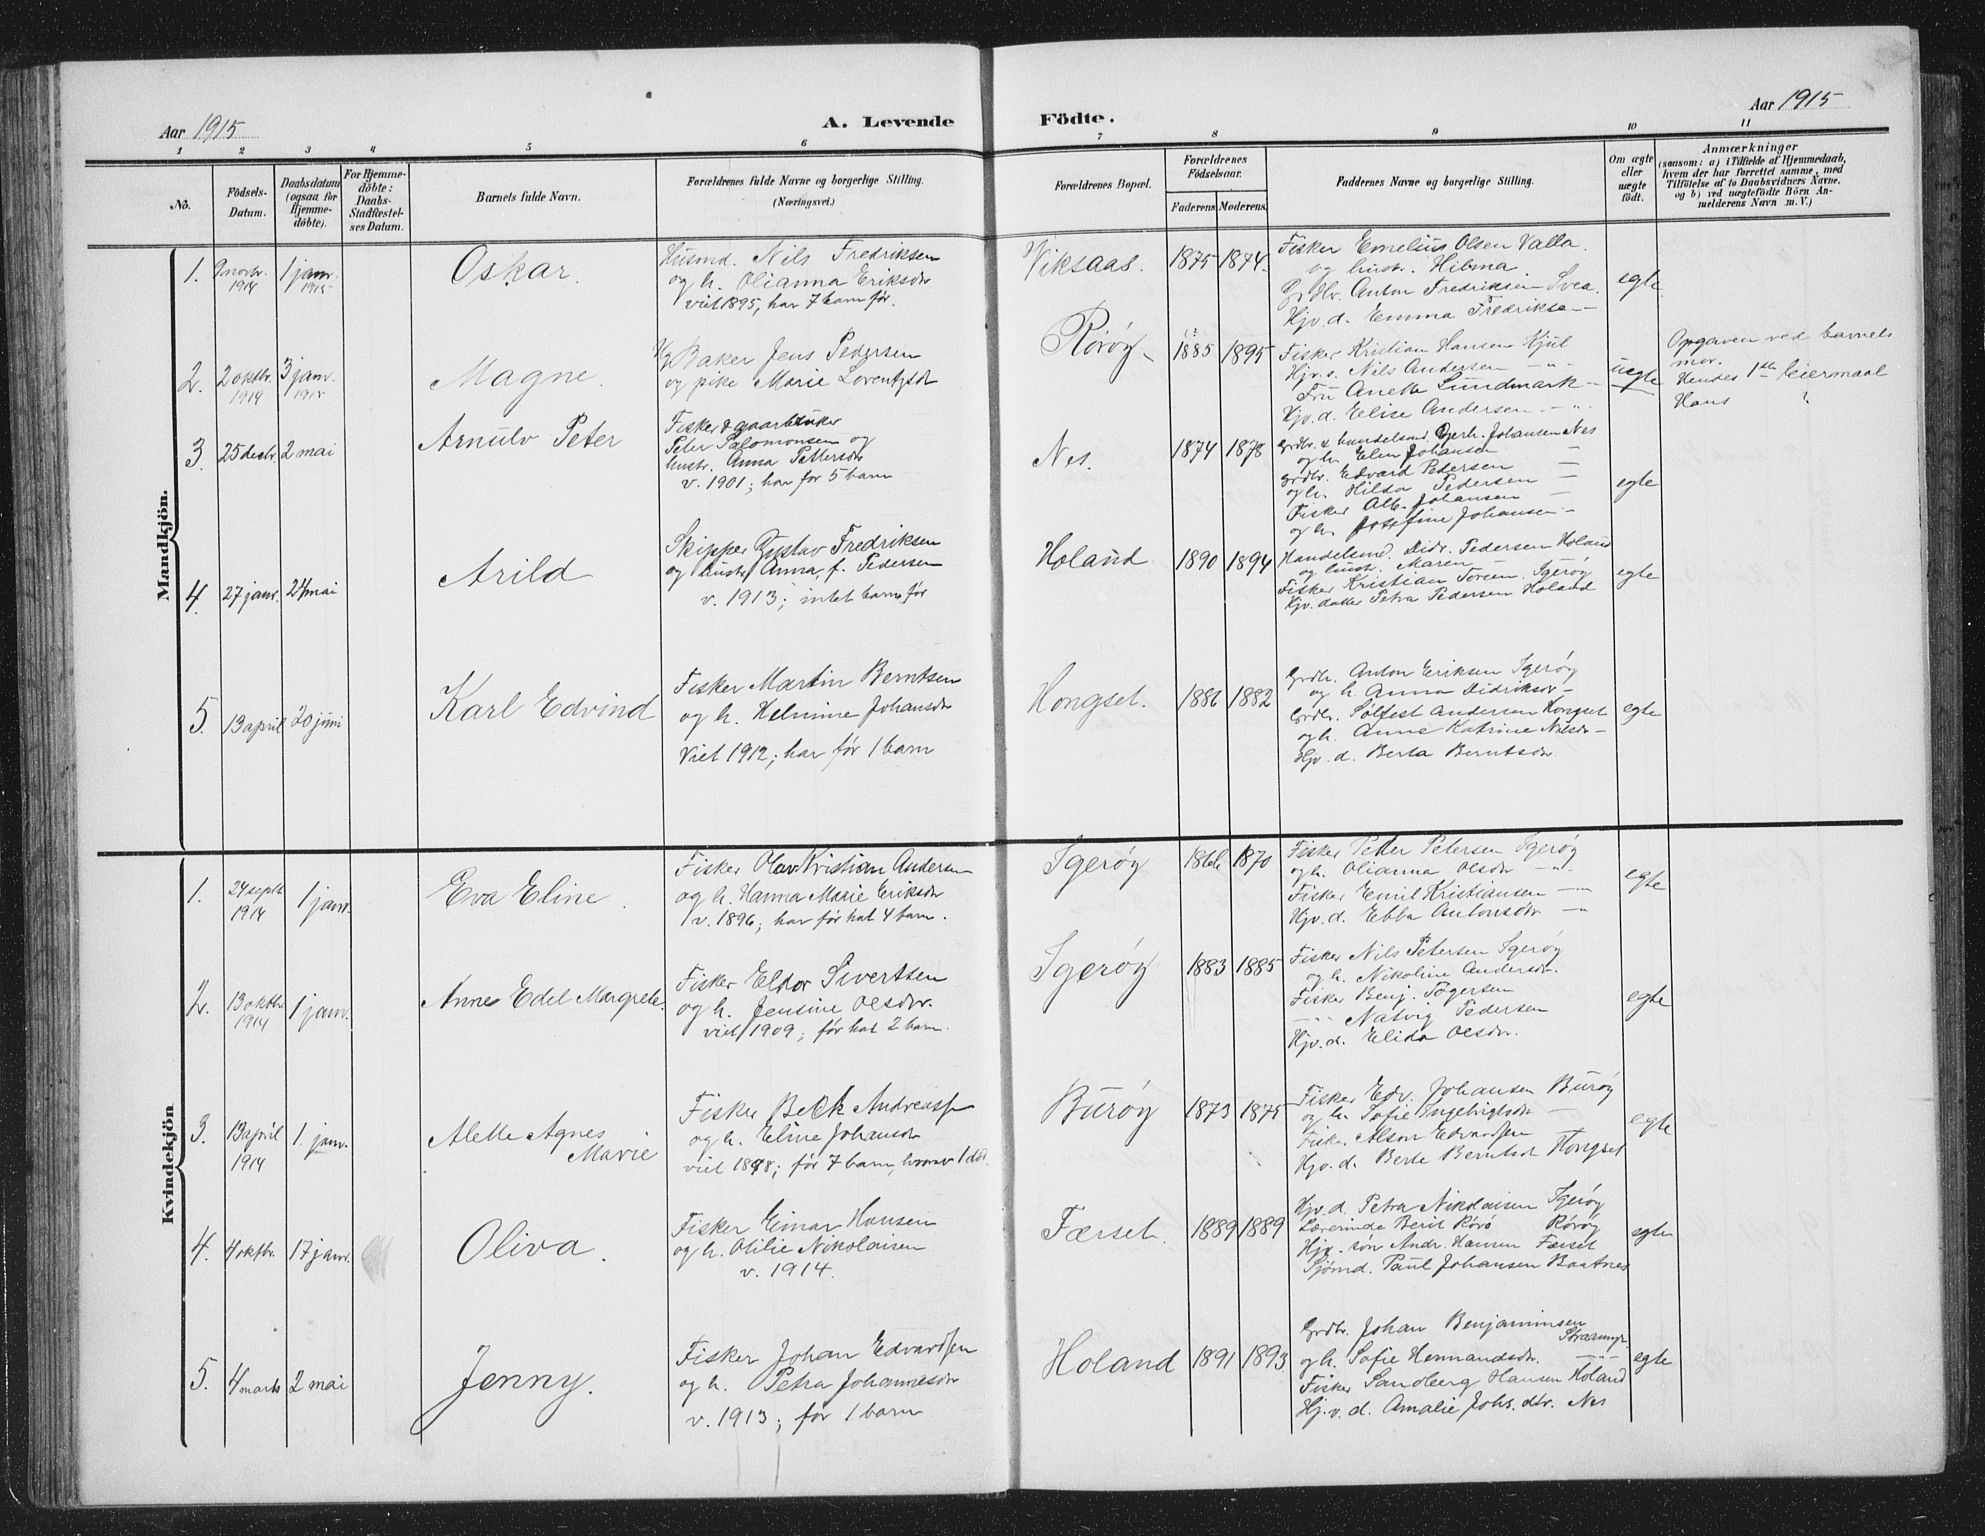 Aar 1915
A. Levende Födte.
Aar 1915
1 2 3 4 5 6 7 8 9 10 11
No.
Födsels-Datum.
Daabsdatum (ogsaa for Hjemme-döbte).
For Hjemme-döbte: Daabs-Stadfæstel-ses Datum.
Barnets fulde Navn.
Forældrenes fulde Navne og borgerlige Stilling.
(Næringsvei.)
Forældrenes Bopæl.
Forældrenes Födselsaar.
Faderens.
Moderens.
Faddernes Navne og borgerlige Stilling.
Om ægte eller uægte födt.
Anmærkninger
(saasom: a) i Tilfælde af Hjemmedaab,
hvem der har forrettet samme, med
Tilföielse af to Daabsvidners Navne,
og b) ved uægtefödte Börn An-
melderens Navn m. V.)
Mandkjön.
1. 9 novbr. 1914 1 janr. 1915
Oskar.
Husmd. Nils Fredriksen
og h. Olianna Eriksdr
viet 1895, har 7 barn før.
Viksaas. 1875 1874.
Fisker Emelius Olsen Valla.
og hustr. Hilma.
Grdbr. Anton Fredriksen Svea.
Hjv. d. Emma Fredriksen —
egte.
2. 2 oktbr. 1914 3 janr. 1915
Magne.
Baker Jens Pedersen
og pike Marie Lorentzdr
Rørøy 1885 1895
Fisker Kristian Hansen Kjul
Hjv. s. Nils Andersen — " —
Fru Anette Lundmark —
Hjv. d. Elise Andersen — " —
uegte
Opgaven ved barnets
mor.
Hendes 1ste leiermaal
Hans "
3. 25 decbr. 2 mai
Arnulv Peter
Fisker & gaarbruker
Peter Salomonsen og
hustr. Anna Pettersdr
v. 1901; har før 5 barn
Nes. 1874 1878
Grdbr. & handelsmd. Gerh. Johansen Nes
og h. Elen Johansen —
grdbr. Edvard Pedersen —
og h. Hilda Pedersen —
Fisker Alb. Johansen —
og h. Josefine Johansen —
egte
4. 27 janr. 24 mai
Arild
Skipper Gustav Fredriksen
og hustr Anna, f. Pedersen
v. 1913; intet barn før
Holand 1890 1894
Handelsmd. Didr. Pedersen Holand
og hustr. Maren —
Fisker Kristian Torsen. Igerøy
Hjv. datter Petra Pedersen Holand
egte
5. 13 april 20 juni
Karl Edvind
Fisker Martin Berntsen
og h. Helmine Johansdr
Viet 1912; har før 1 barn
Hongset. 1886 1882
Grdbr. Anton Eriksen Igerøy
og h. Anna Didriksdr —
Grdbr. Sølfest Andersen Hongset
og h. Anne Katrine Nilsdr —
Hjv. d. Berta Berntsdr.
egte
Kvindekjön
1. 24 septbr 1914 1 janr.
Eva Eline.
Fisker Olav Kristian Andersen
og h. Hanna Marie Eriksdr
v. 1896; har før hat 4 barn.
Igerøy 1866 1870
Fisker Petter Petersen Igerøy
og h. Olianna Olsdr — " —
Fisker Emil Kristiansen — " —
Hjv. d. Ebba Antonsdr — " —
egte
2. 13 oktbr. 1914 1 janr.
Anne Edel Margrete.
Fisker Eldor Sivertsen
og h. Jensine Olsdtr.
viet 1909; før hat 2 barn.
Igerøy 1883 1885
Fisker Nils Petersen Igerøy
og h. Nikoline Andersdr.
Fisker Benj. Togersen
— " — Natvig Pedersen
Hjv. d. Elida Olsdr.
egte
3. 13 april 1914 1. janr.
Alette Agnes Marie
Fisker Beck Andreassen
og h. Eline Johansdr
viet 1898; før 7 barn, hvorav 1 død.
Burøy 1873 1875
Fisker Edv. Johansen Burøy
og h. Sofie Ingebrigtsdr —
Fisk. Alson Edvardsen
Hjv. d. Berte Berntsdr Hongset
egte
4. 4 oktbr. 17 janr.
Oliva.
Fisker Einar Hansen
og h. Otilie Nikolaisen
v. 1914.
Færset. 1889 1889
Hjv. d. Petra Nikolaisen Igerøy
Lærerinde Berit Rörö Rörøy
Hjv. søn Andr. Hansen Færset
Sjømd. Paul Johansen Baatnes
egte
5. 4 marts 2 mai
Jenny.
Fisker Johan Edvardsen
og h. Petra Johannesdr
v. 1913; før 1 barn
Holand 1891 1893
Grdbr. Johan Benjaminsen
og h. Sofie Hemandsdr. — " —
Fisker Sandberg Hansen Holand
Hj.v. d. Amalie Johs. dtr. Nes
egte